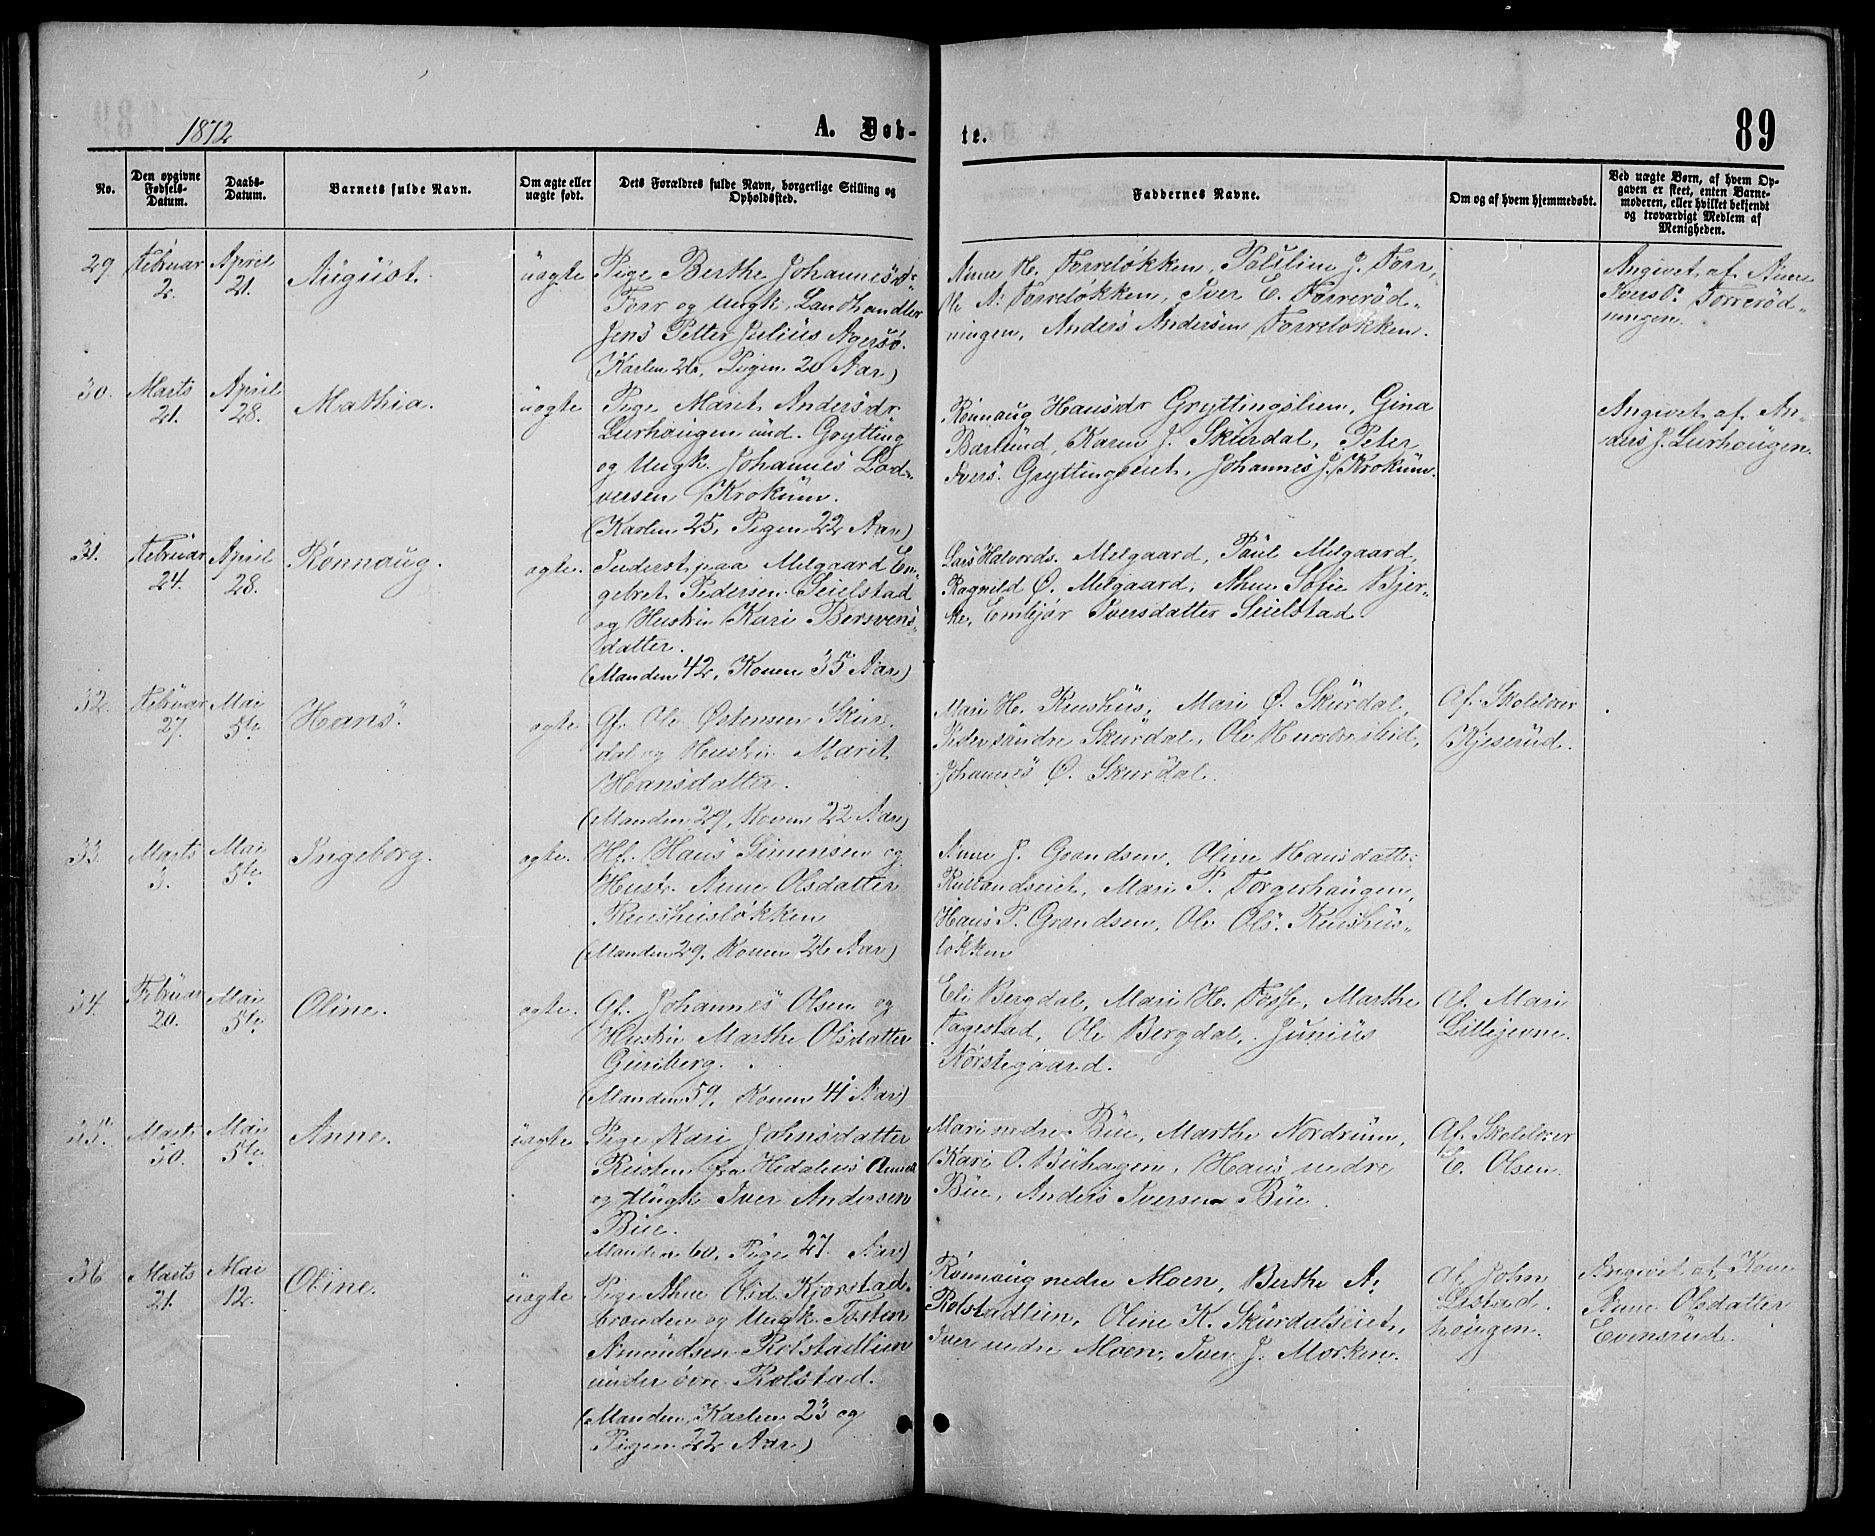 1872
A. Døb-
te.
89
No.
Den opgivne Fødsels-Datum.
Daabs-Datum.
Barnets fulde Navn.
Om ægte eller uægte født.
Dets Forældres fulde Navn, borgerlige Stilling og Opholdssted.
Faddernes Navne.
Om og af hvem hjemmedøbt.
Ved uægte Børn, af hvem Op-
gaven er skeet, enten Barne-
moderen, eller hvilket bekjendt
og troværdigt Medlem af
Menigheden.
29. Februar 2. April 21. August. uægte
Pige Berthe Johannesdr
Forr og Ungk. Landhandler
Jens Petter Julius Agersø.
(Karlen 26, Pigen 20 Aar)
Anne H. Forreløkken, Pauline J. Forr,
A. Forreløkken, Iver E. Forrerød-
ningen, Anders Andersen Forreløkken.
Angivet af Anne
Iversdr Forrerød-
ningen.
30. Marts 21. April 28. Mathia. uægte
Pige Marit Andersdr
Lurhaugen und. Grytting
og Ungk. Johannes Lod-
versen Krokum.
(Karlen 25, Pigen 22 Aar)
Rønnaug Hansdr Gryttingslien, Gina
Barlund, Karen J. Skurdal, Peter
Ivers. Gryttingseiet, Johannes J. Krokum.
Angivet af An-
ders J. Lurhougen.
31. Februar 24. April 28. Rønnaug. ægte.
Inderst paa Melgaard En-
gebret Pedersen Seielstad
og Hustru Kari Bersvens-
datter.
(Manden 42, Konen 35 Aar)
Lars Halvords. Melgaard, Paul Melgaard,
Ragnild Ø. Melgaard, Anne Sofie Bjer-
ke, Embjør Iversdatter Seielstad.
32. Februar 27. Mai 5te Hans. ægte
Gf. Ole Østensen Skur-
dal og Hustru Marit
Hansdatter.
(Manden 29, Konen 22 Aar)
Mari H. Rushus, Mari Ø. Skurdal,
Peder søndre Skurdal, Ole H. nordre
Johannes Ø. Skurdal.
Af Skolelærer
Kjeserud.
33. Marts 3. Mai 5te Ingeborg. ægte.
Hf. Hans Simensen og
Hustr. Anne Olsdatter
Rushusløkken
(Manden 29, Konen 26 Aar)
Anne J. Grandsen, Oline Hansdatter
Mari P. Torgerhaugen,
Hans P. Grandsen, Ole Ols. Ruushus-
løkken
34. Februar 20. Mai 5te Oline. ægte.
Gf. Johannes Olsen og
Hustru Marthe Olsdatter
Guriberg.
(Manden 59, Konen 41 Aar)
Eli Bergdal, Mari H. Fosse, Marthe
Fagestad, Ole Bergdal, Junius
Nørstegaard.
Af Mari
Lillejevne.
35. Marts 30. Mai 5te Anne. uægte
Pige Kari Johnsdatter
Rusten fra Hedalens Annex
og Ungk. Iver Andersen
Bue.
Manden 60, Pige 27 Aar)
Mari nedre Bue, Marthe Nordrum,
Kari O. Buhagen, Hans nedre
Bue, Anders Iversen Bue.
Af Skolelærer
E. Olsen.
36 Marts 21. Mai 12. Oline. uægte
Pige Anne Olsd. Kjorstad-
branden og Ungk. Tosten
Amundsen Rolstadlien
under øvre Rolstad.
(Manden, Karlen 23 og
Pigen 22 Aar)
Rønnaug nedre Moen, Berthe A.
Rolstadlien, Oline K. Skurdalseiet,
Iver nedre Moen, Iver J. Morken.
Af John
Listad-
hougen.
Angivet af Kone
Anne Olsdatter
Evensrud.